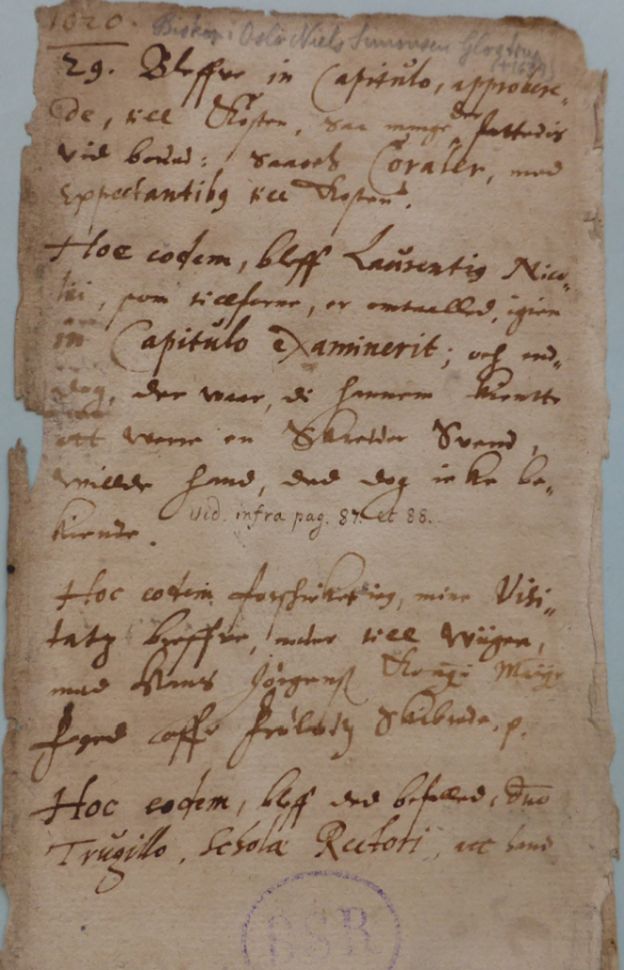 1620.
Biskop i Oslo Niels Simonsen Glostrup
(†1639)
29. Bleffve in Capitulo, approbere„
de, till Kosten, saa mange der fattedis
vid bord: saasok Coraler, med
Expectantibus till Kosten.
Hoc eodem, bleff Laurentius Nico„
lai, som tillforne, er omtalled, igien
in Capitulo Examinerit; och end„
dog, der waar, di hannem kiente
att were en Skreder Svend,
wilde hand, ded dog icke be„
kiende.
vid. infra pag. 87. et 88.
Hoc eodem forskicket ieg, mine Visi„
tatz breffve, neder till Wiigen,
med Hans Jørgenß Kongl Mayts
Foged offr Skibrede, p.
Hoc eodem, bleff ded befalled, Dno
Trugillo, Scholæ Rectori, att hand
BSR